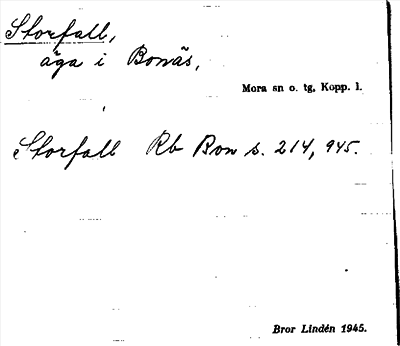 Storfall,
äga i Bonäs,
Mora sn o. tg, Kopp. l.
Storfall Rb Bon s. 214, 945.
Bror Lindén 1945.